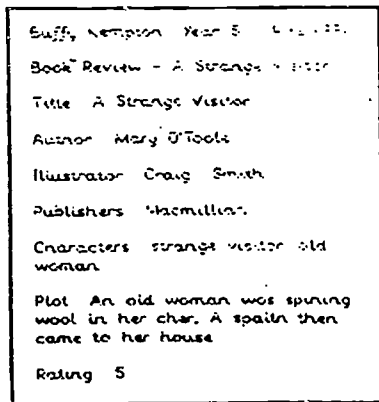 Buffy Kempton Year 5
Book Review - A Strange Visitor
Title A Strange Visitor
Author Mary O'Toole
Illustrator Craig Smith
Publishers Macmillian.
Characters strange visitor old
woman
Plot An old woman was spining
wool in her cher. A spaitn then
came to her house
Rating 5